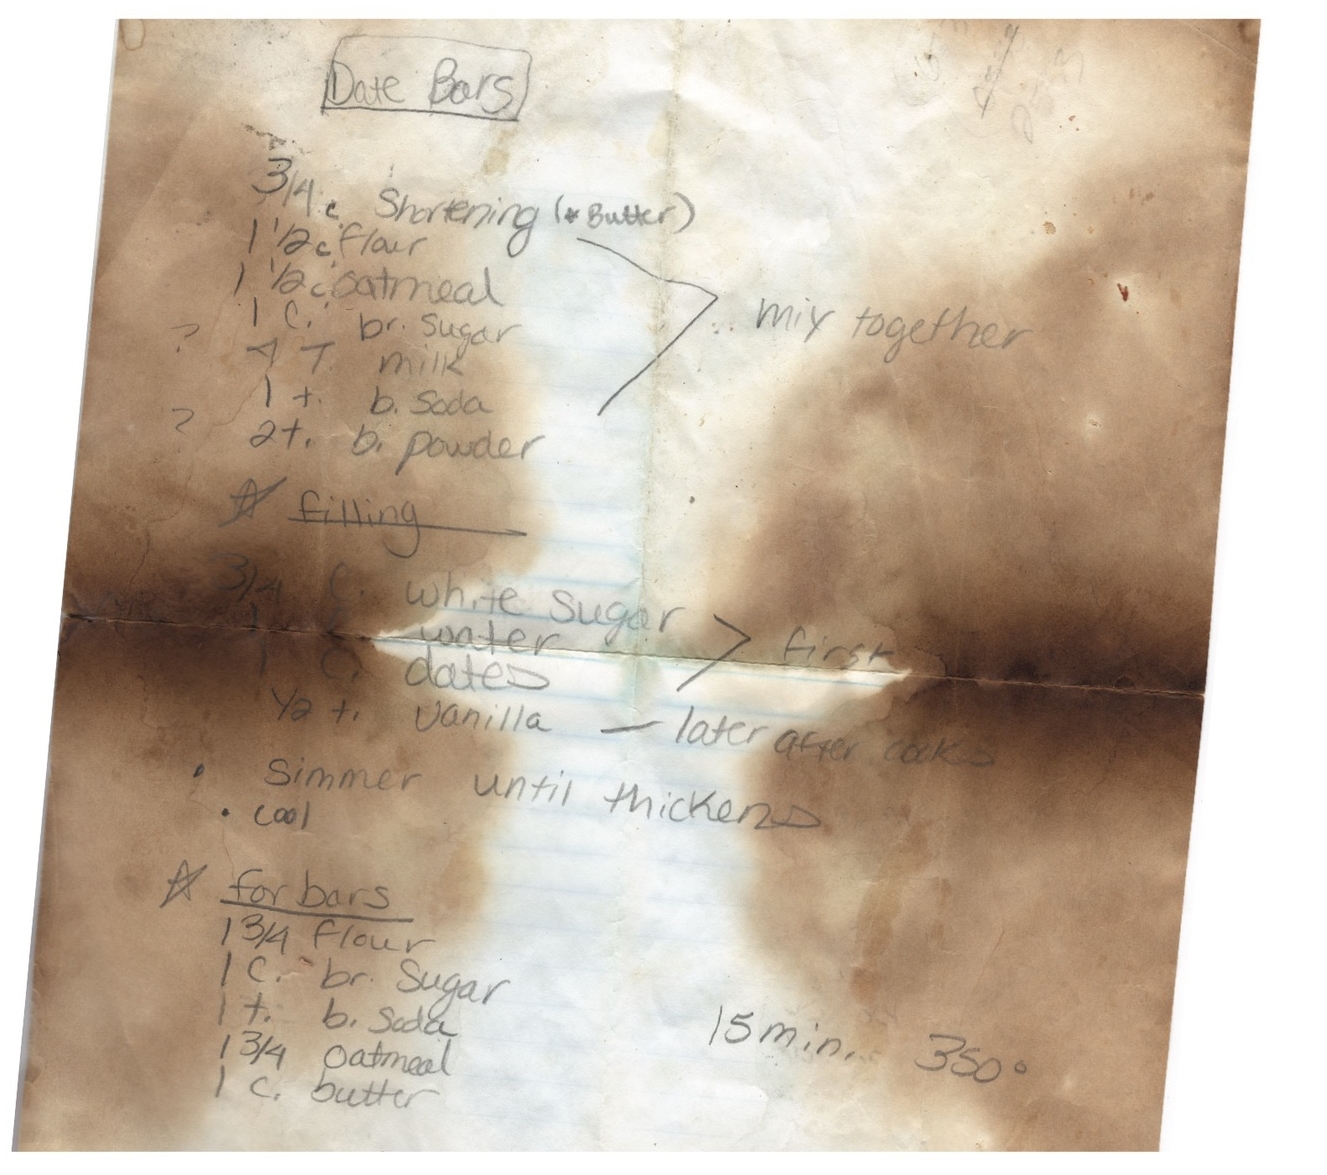 Date Bars
3/4 c Shortening (* Butter)
1 1/2 c flour
1 1/2 c oatmeal
1 C. br. Sugar
mix together
? 4 T. milk
1 t. b. Soda
? 2t. b. powder
☆ filling
3/4 C. white Sugar
1 water
first
1 C. dates
1/2 t. Vanilla — later after cooks
• Simmer until thickens
• cool
☆ for bars
1 3/4 flour
1 C. br. Sugar
1 t. b. Soda
15 min. 350°
1 3/4 oatmeal
1 C. butter